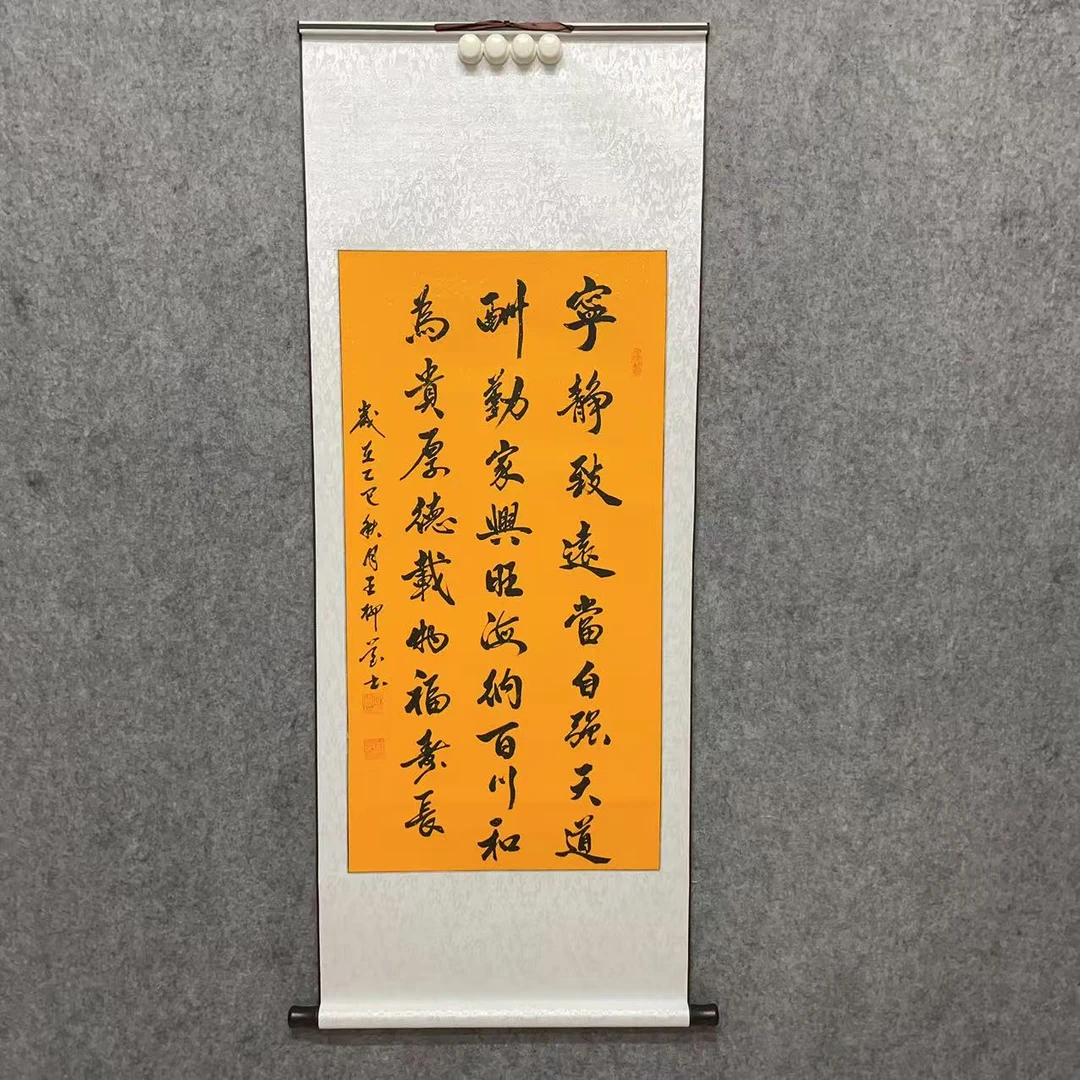 寧靜致遠當自強天道
酬勤家興旺海納百川和
為貴厚德載物福壽長
歲在乙巳秋月王柳書